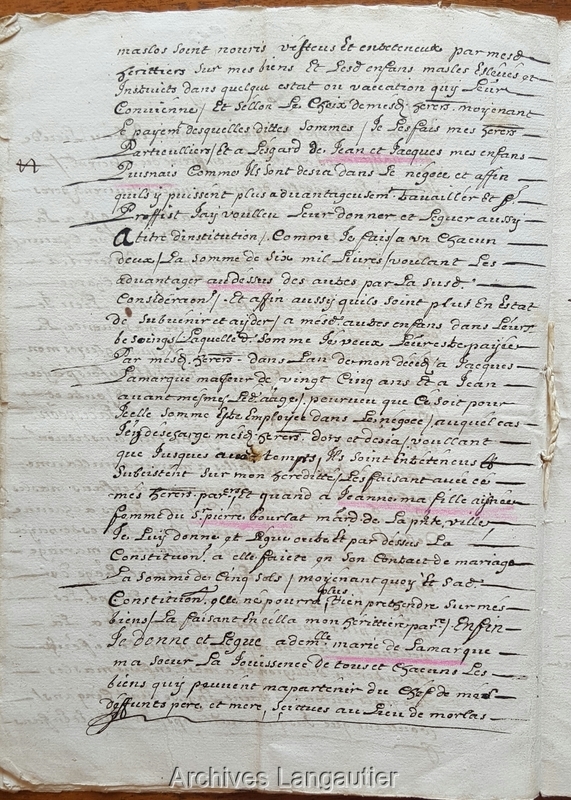 masles soint nouris vestus et entretenus par mesd.
heritiers sur mes biens et lesd enfans masles esleves et
instruits dans quelque estat ou vaccation quy leur
convienne / et sellon le choix de mesd. herers. moyenant
le payemt desquelles dittes sommes / je les fais mes herers
particuilliers / et a lesgard de jean et jacques mes enfans
puisnais comme ils sont desia dans le negoce et affin
quils y puissent plus advantageusemt travailler et pr.
proffist jay voulleu leur donner et leguer aussy
a titre dinstitution / comme je fais / a un chacun
deux / la somme de six mil livres / voulant les
advantager audessus des autres par la susd.
consideraon / et affin aussy quils soint plus en estat
de subvenir et ayder / a mesd. autres enfans dans leurs
besoings laquelle d. somme je veux leur estre payée
par mesd. herers. dans lan de mon deced / a jacques
Lamarque majeur de vingt cinq ans et a jean
avant mesmes led. aage / pourveu que ce soit pour
icelle somme estre employée dans le negoce / auquel cas
jen descharge mesd. herers. dors et desia / voullant
que jusques aud. temps / ils soint entretenus et
subcistent sur mon heredité / les faisant avec ce
mes herers parers. et quand a jeanne ma fille aisnée
femme du sr. pierre bourlat mard de la pnte ville /
je luy donne et legue outre et par dessus la
constituon. a elle faicte en son contrait de mariage
la somme de cinq sols / moyenant quoy et sad.
constituon. elle ne pourra plus rien prethendre sur mes
biens / la faisant en cella mon heritiere pare / enfin
je donne et legue a demlle marie de Lamarque
ma soeur la jouissence de tous et chacuns les
biens quy peuvent mapartenir du chef de mes
deffunts pere et mere, scitués au lieu de morlas
Archives Langautier